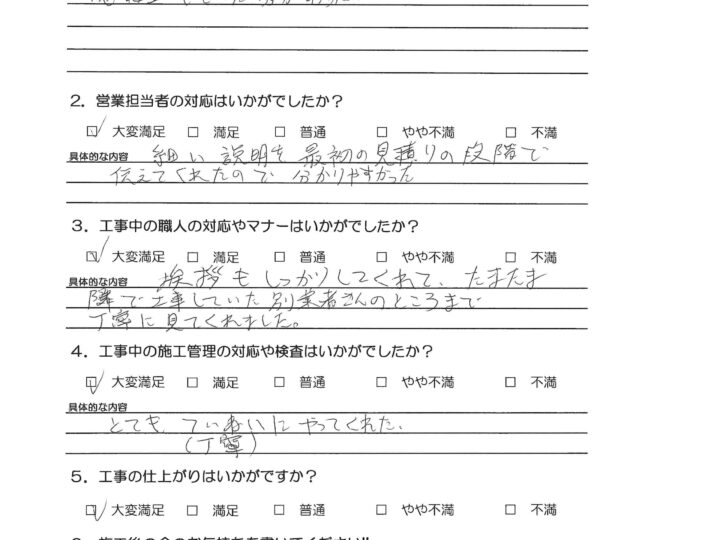 2. 営業担当者の対応はいかがでしたか？
☑ 大変満足 □ 満足 □ 普通 □ やや不満 □ 不満
具体的な内容 細い 説明を 最初の見積りの段階で
伝えてくれたので 分かりやすかった
3. 工事中の職人の対応やマナーはいかがでしたか？
☑ 大変満足 □ 満足 □ 普通 □ やや不満 □ 不満
具体的な内容 挨拶もしっかりしてくれて、たまたま
隣で工事していた別業者さんのところまで
丁寧に見てくれました。
4. 工事中の施工管理の対応や検査はいかがでしたか？
☑ 大変満足 □ 満足 □ 普通 □ やや不満 □ 不満
具体的な内容
とても ていねいに やってくれた。
(丁寧)
5. 工事の仕上がりはいかがですか？
☑ 大変満足 □ 満足 □ 普通 □ やや不満 □ 不満